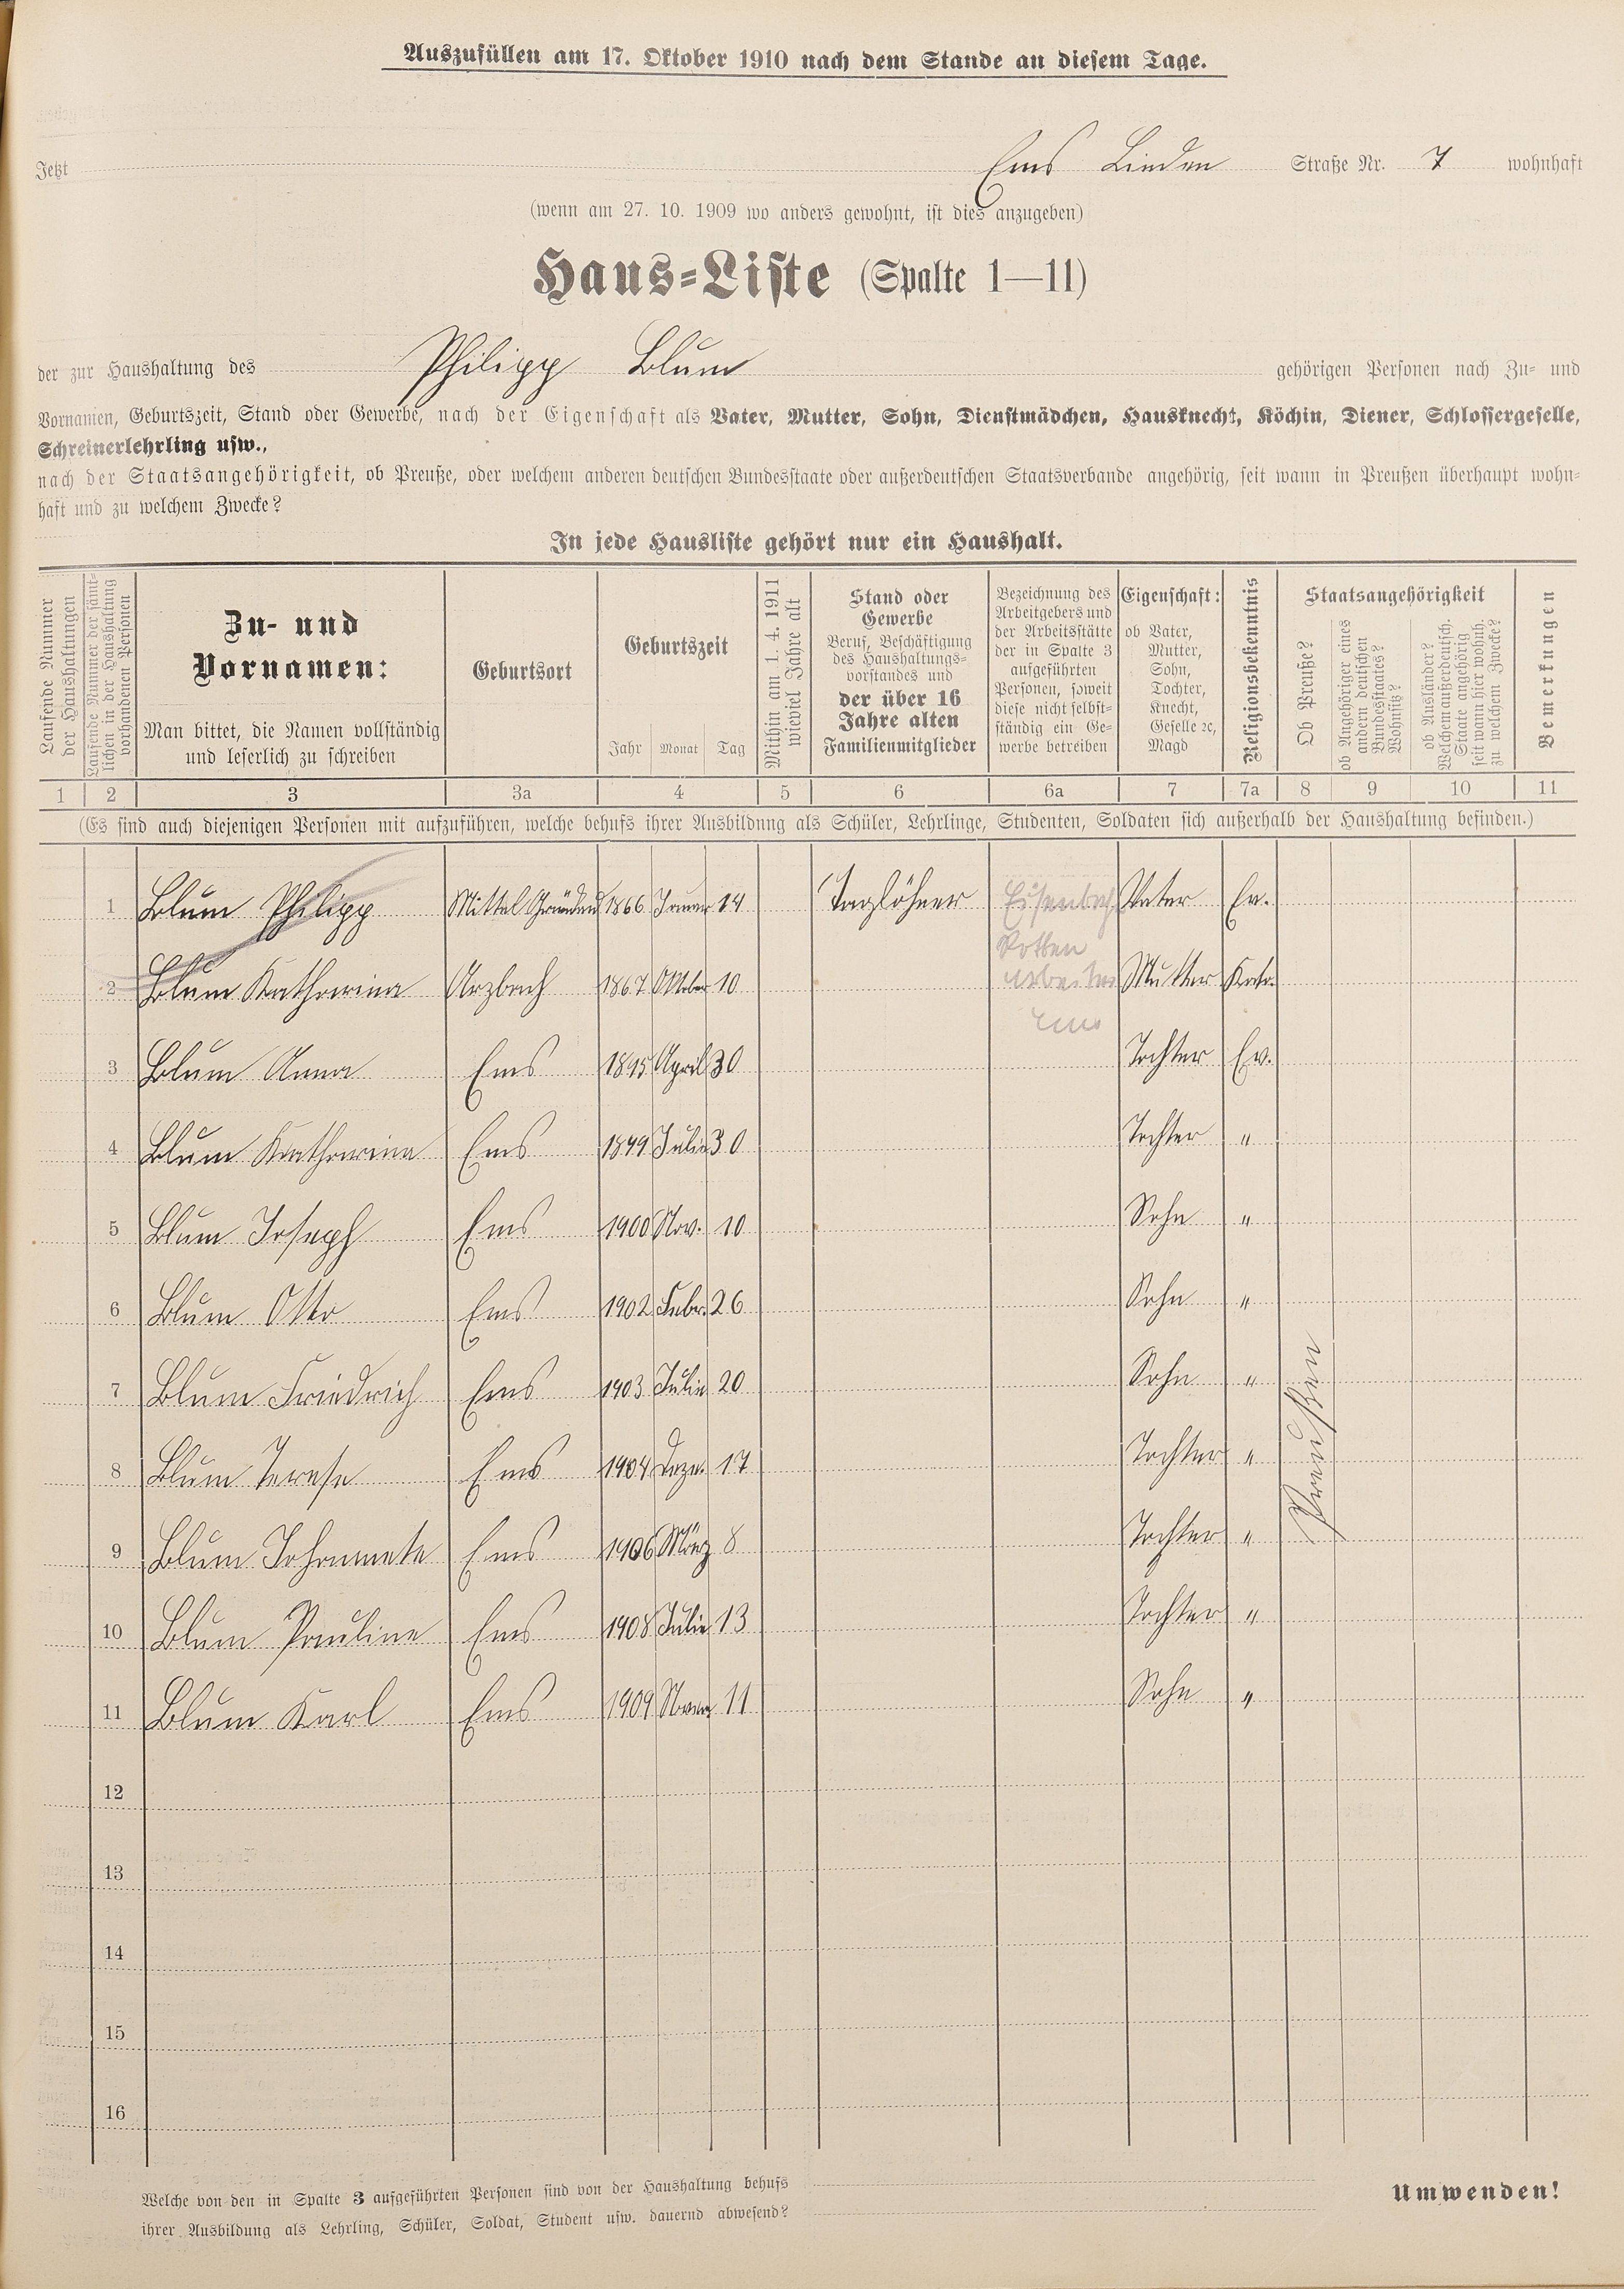 Auszufüllen am 17. Oktober 1910 nach dem Stande an diesem Tage.
Jetzt Ems Linden Straße Nr. 7 wohnhaft
(wenn am 27. 10. 1909 wo anders gewohnt, ist dies anzugeben)
Haus-Liste (Spalte 1—11)
der zur Haushaltung des Philipp Blum gehörigen Personen nach Zu- und
Vornamen, Geburtszeit, Stand oder Gewerbe, nach der Eigenschaft als Vater, Mutter, Sohn, Dienstmädchen, Hausknecht, Köchin, Diener, Schlossergeselle,
Schreinerlehrling usw.,
nach der Staatsangehörigkeit, ob Preuße, oder welchem anderen deutschen Bundesstaate oder außerdeutschen Staatsverbande angehörig, seit wann in Preußen überhaupt wohn-
haft und zu welchem Zwecke?
In jede Hausliste gehört nur ein Haushalt.
Laufende Nummer
der Haushaltungen
Laufende Nummer der sämt-
lichen in der Haushaltung
vorhandenen Personen
Zu- und
Vornamen:
Man bittet, die Namen vollständig
und leserlich zu schreiben
Geburtsort
Geburtszeit
Jahr Monat Tag
Mithin am 1. 4. 1911
wieviel Jahre alt
Stand oder
Gewerbe
Beruf, Beschäftigung
des Haushaltungs-
vorstandes und
der über 16
Jahre alten
Familienmitglieder
Bezeichnung des
Arbeitgebers und
der Arbeitsstätte
der in Spalte 3
aufgeführten
Personen, soweit
diese nicht selbst-
ständig ein Ge-
werbe betreiben
Eigenschaft:
ob Vater,
Mutter,
Sohn,
Tochter,
Knecht,
Geselle ꝛc,
Magd
Religionsbekenntnis
Staatsangehörigkeit
Ob Preuße?
ob Angehöriger eines
andern deutschen
Bundesstaates?
Wohnsitz?
ob Ausländer?
Welchem außerdeutsch.
Staate angehörig
seit wann hier wohnh.
zu welchem Zwecke?
Bemerkungen
1 2 3 3a 4 5 6 6a 7 7a 8 9 10 11
(Es sind auch diejenigen Personen mit aufzuführen, welche behufs ihrer Ausbildung als Schüler, Lehrlinge, Studenten, Soldaten sich außerhalb der Haushaltung befinden.)
1 Blum Philipp Mittel Gründau 1866 Januar 14 Taglöhner Vater Ev.
Rotten
arbeiter
Ems
2 Blum Katharina Arzbach 1867 Oktober 10 Mutter Kath.
3 Blum Anna Ems 1895 April 30 Tochter Ev.
4 Blum Katharina Ems 1899 Julie 30 Tochter "
5 Blum Joseph Ems 1900 Nov. 10 Sohn "
6 Blum Otto Ems 1902 Febr. 26 Sohn "
7 Blum Friedrich Ems 1903 Julie 20 Sohn "
8 Blum Terese Ems 1904 Deze. 17 Tochter "
9 Blum Johannete Ems 1906 März 8 Tochter "
10 Blum Pauline Ems 1908 Julie 13 Tochter "
11 Blum Karl Ems 1909 11 Sohn "
Preußen
12
13
14
15
16
Welche von den in Spalte 3 aufgeführten Personen sind von der Haushaltung behufs
ihrer Ausbildung als Lehrling, Schüler, Soldat, Student usw. dauernd abwesend?
Umwenden!